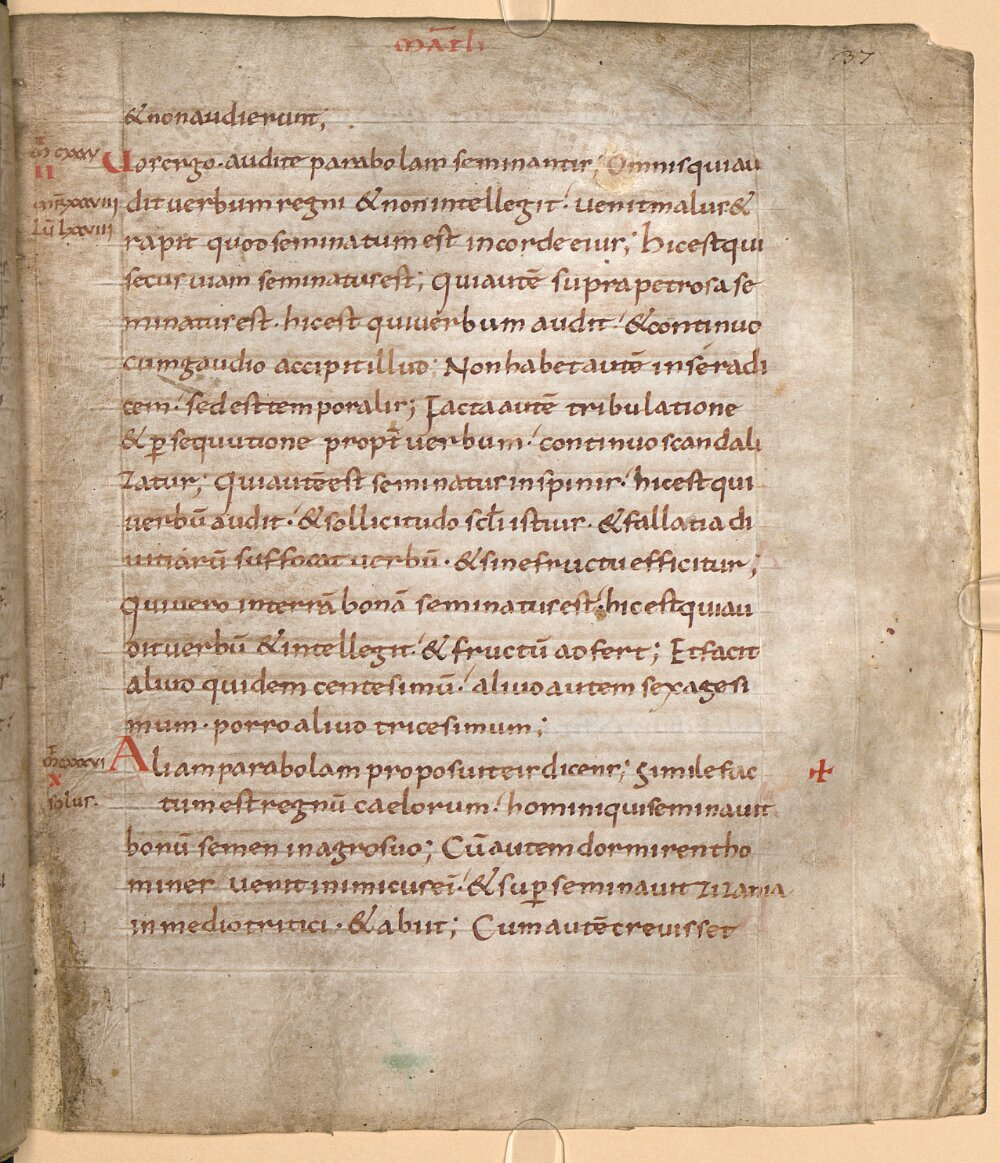 MATH
37
& non audierunt;
m̄ cxxxv
II
Uos ergo· audite parabolam seminantis; Omnis qui au
mr̄ xxxviii
dit verbum regni & non intellegit· venit malus &
Lū lxxviii
rapit quod seminatum est in corde eius; hic est qui
secus uiam seminatus est; Qui autē supra petrosa se
minatus est· hic est qui verbum audit· & continuo
cum gaudio accipit illud; Non habet autē in sé radi
cem· sed est temporalis; Facta autē tribulatione
& ꝑsequutione propt̄ verbum· continuo scandali
zatur; Qui autē est seminatus in spinis· hic est qui
verbū audit· & sollicitudo sclī istius· & fallatia di
uitiarū suffocat verbū· & sine fructu efficitur;
Qui uero in terrā bonā seminatus est· hic est qui au
dit verbū & intellegit· & fructū adfert; Et facit
aliud quidem centesimū· aliud autem sexagesi
mum· porro aliud tricesimum;
m̄ cxxxvi
X
solus.
Aliam parabolam proposuit eis dicens; Simile fac
tum est regnū caelorum· homini qui seminauit
bonū semen in agro suo; Cū autem dormirent ho
mines venit inimicus eī· & suꝑseminauit zizania
in medio tritici· & abiit; Cum autē creuisset